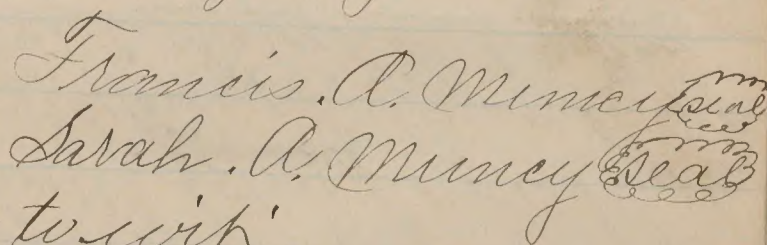 Francis. A. Muncy seal
Sarah. A. Muncy seal
to wit